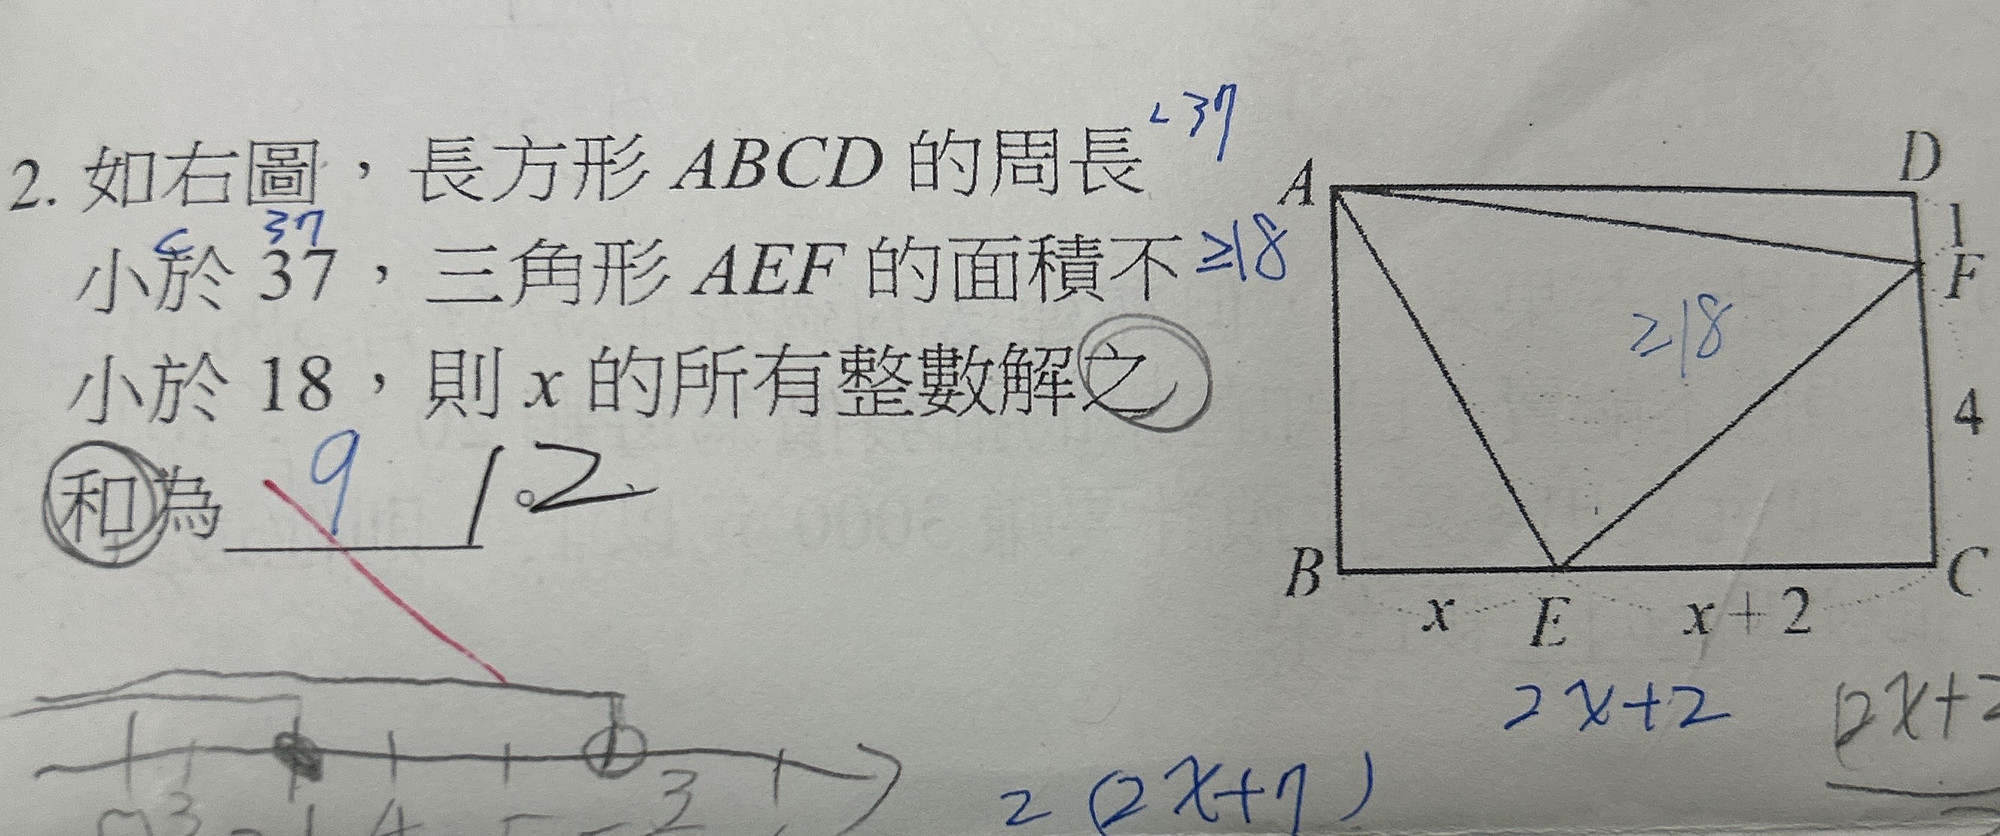 <37
2. 如右圖，長方形 ABCD 的周長
< 37
小於 37，三角形 AEF 的面積不 ≥18
小於 18，則 x 的所有整數解之
和為 9 12
。
A D
1
F
≥18
4
B x E x+2 C
2x+2
2(2x+7)